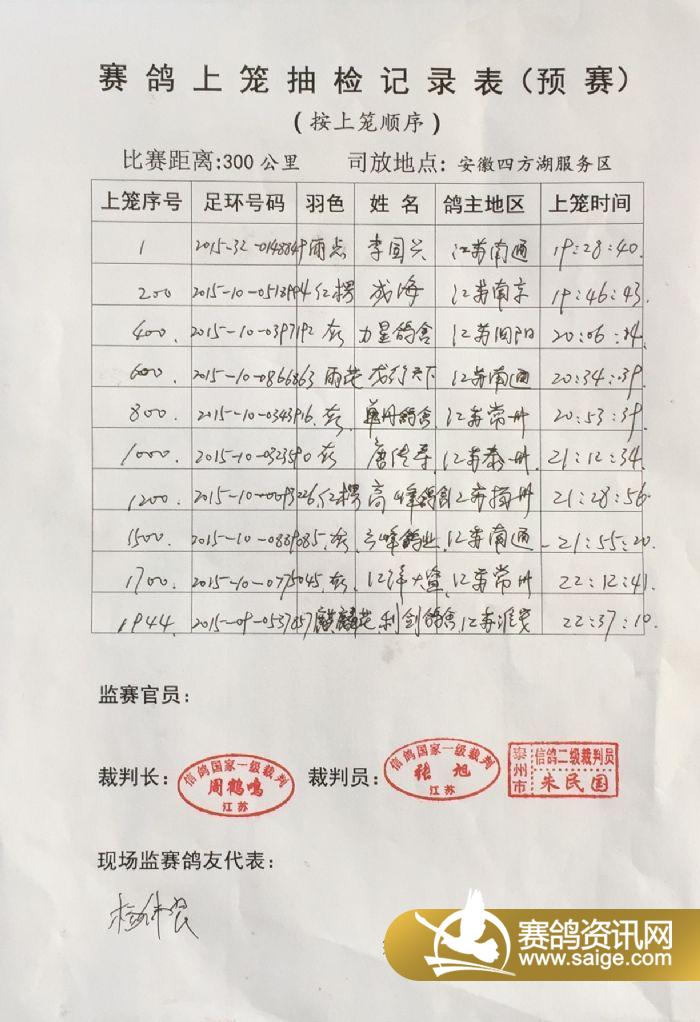 赛鸽上笼抽检记录表(预赛)
(按上笼顺序)
比赛距离:300公里 司放地点: 安徽四方湖服务区
上笼序号 足环号码 羽色 姓名 鸽主地区 上笼时间
1 2015-32-0148849 雨点 李国兴 江苏南通 19:28:40.
200 2015-10-0513994 红楞 成海 江苏南京 19:46:43.
400. 2015-10-0397192 灰 力星鸽舍 江苏 20:06:14.
600. 2015-10-0866863 雨花 龙行天下 江苏南通 20:34:39.
800. 2015-10-0343916. 灰. 鸽舍 江苏常州 20:53:39.
1000. 2015-10-0323590 灰. 唐传寿. 江苏泰州. 21:12:34.
1200. 2015-10-0093226. 红楞 高峰鸽舍 江苏扬州 21:28:56.
1500. 2015-10-0889085. 灰. 云峰鸽业. 江苏南通 21:55:20.
1700. 2015-10-0775045. 灰. 江洋大盗. 江苏常州 22:12:41.
1944. 2015-09-0537857 麒麟花 利剑鸽舍 江苏淮安 22:37:10.
监赛官员:
裁判长: 信鸽国家一级裁判 周鹤鸣 江苏 裁判员: 信鸽国家一级裁判 张旭 江苏 泰州市 信鸽二级裁判员 朱民国
现场监赛鸽友代表:
赛鸽资讯网
www.saige.com